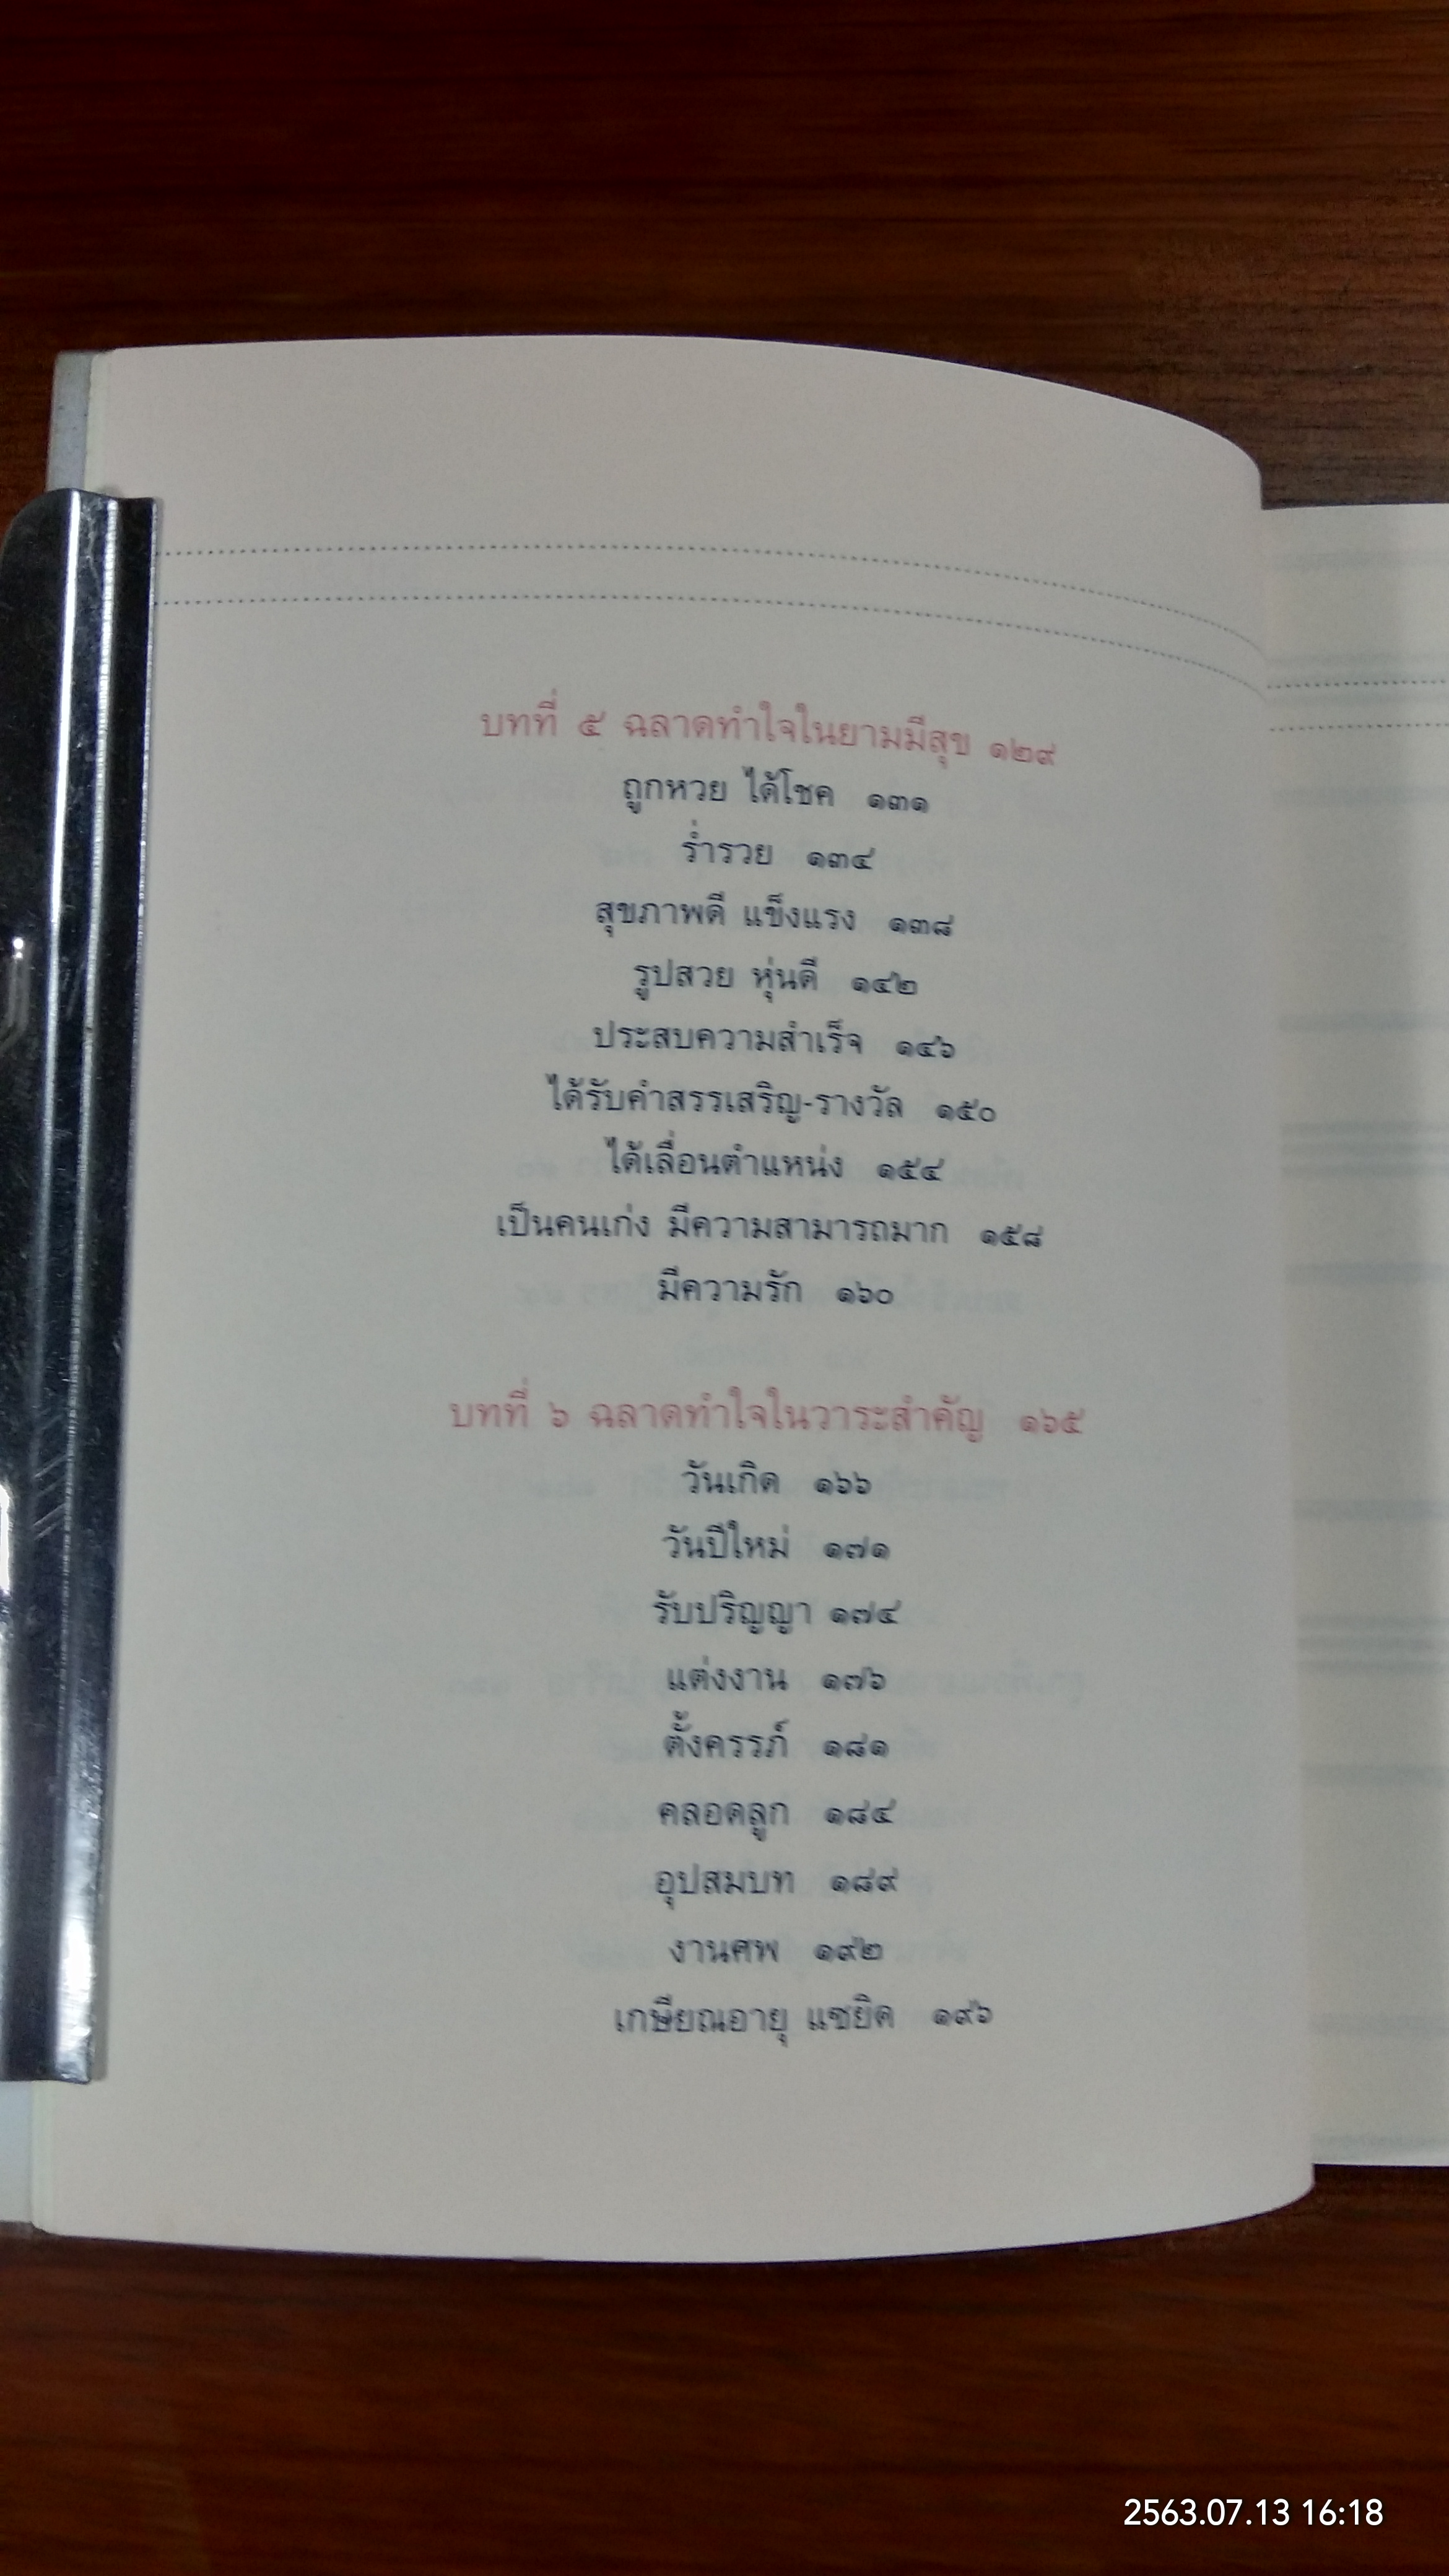 บทที่ ๕ ฉลาดทำใจในยามมีสุข ๑๒๙
ถูกหวย ได้โชค ๑๓๑
ร่ำรวย ๑๓๔
สุขภาพดี แข็งแรง ๑๓๘
รูปสวย หุ่นดี ๑๔๒
ประสบความสำเร็จ ๑๔๖
ได้รับคำสรรเสริญ-รางวัล ๑๕๐
ได้เลื่อนตำแหน่ง ๑๕๔
เป็นคนเก่ง มีความสามารถมาก ๑๕๘
มีความรัก ๑๖๐
บทที่ ๖ ฉลาดทำใจในวาระสำคัญ ๑๖๕
วันเกิด ๑๖๖
วันปีใหม่ ๑๗๑
รับปริญญา ๑๗๔
แต่งงาน ๑๗๖
ตั้งครรภ์ ๑๘๑
คลอดลูก ๑๘๔
อุปสมบท ๑๘๙
งานศพ ๑๙๒
เกษียณอายุ แซยิด ๑๙๖
2563.07.13 16:18